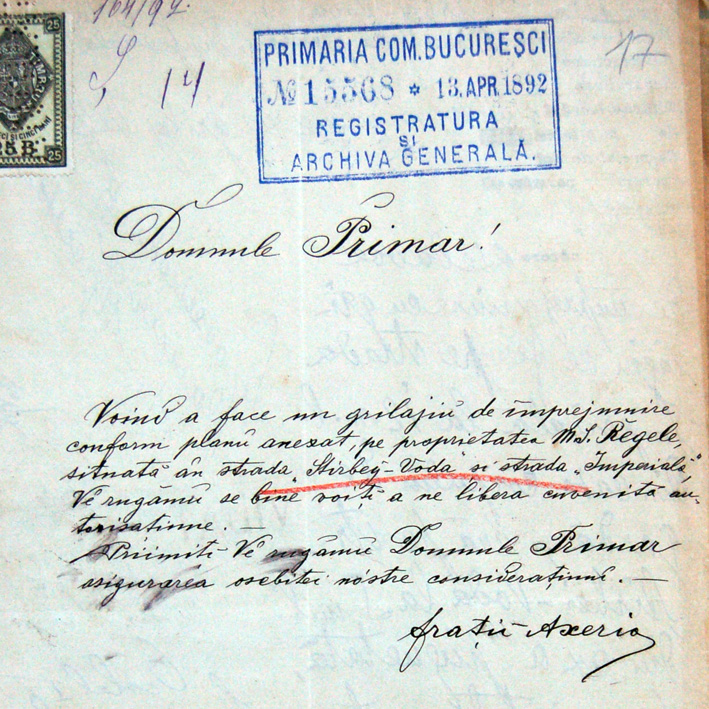 164/92.
14
17
25
25 B.
25
PRIMARIA COM. BUCURESCI
No 15568 * 13. APR. 1892
REGISTRATURA
ȘI
ARCHIVA GENERALĂ.
Domnule Primar!
Voind a face un grilajiu de împrejmuire
conform planu anexat pe proprietatea M. S. Regele,
situată în strada „Stirbey-Vodă" si strada „Imperială"
Ve rugămu se bine voiți a ne libera cuvenita au-
torisațiune. —
Priimiti Ve rugămu Domnule Primar
asigurarea osebitei nóstre considerațiuni. —
frații Axerio